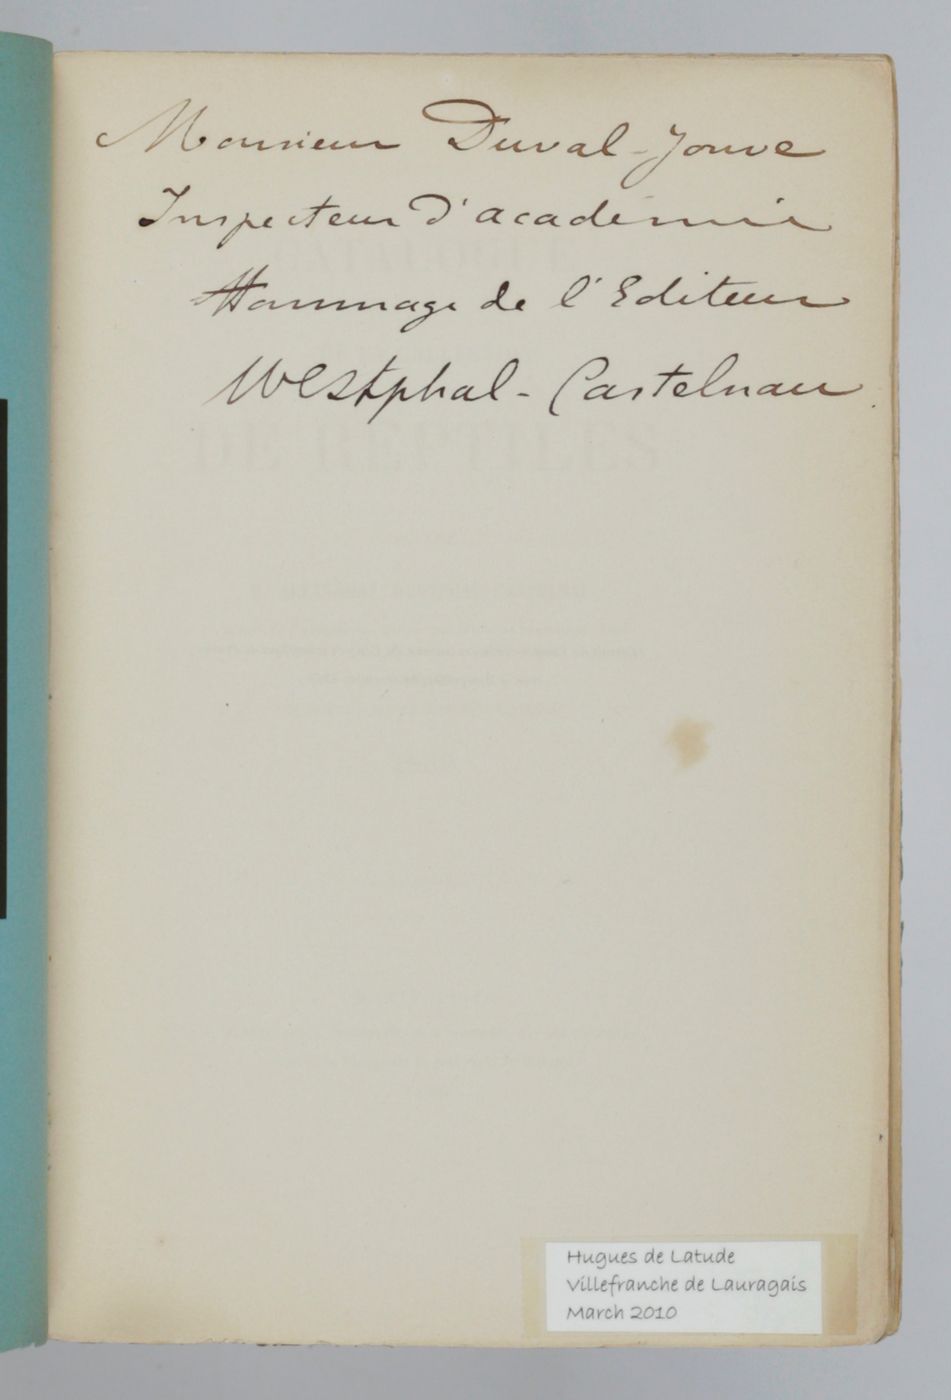 Monsieur Duval-Jouve
Inspecteur d'académie
Hommage de l'Editeur
Westphal-Castelnau
DE REPTILES
Hugues de Latude
Villefranche de Lauragais
March 2010